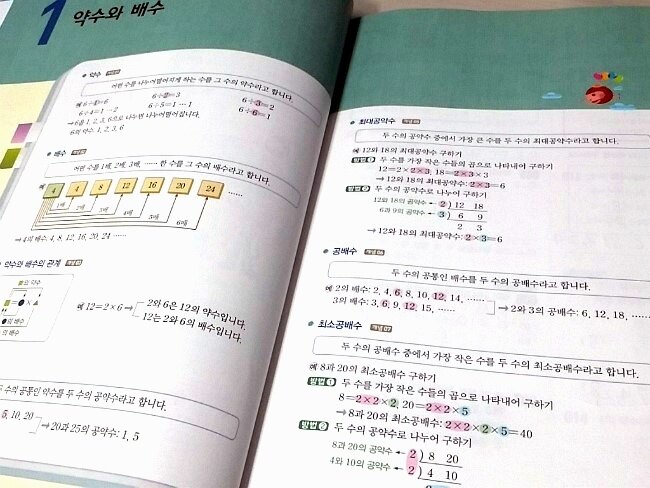 1 약수와 배수
약수
어떤 수를 나누어떨어지게 하는 수를 그 수의 약수라고 합니다.
예 6÷1=6 6÷2=3 6÷3=2
6÷4=1…2 6÷5=1…1 6÷6=1
→ 6을 1, 2, 3, 6으로 나누면 나누어떨어집니다.
6의 약수: 1, 2, 3, 6
배수
어떤 수를 1배, 2배, 3배, …… 한 수를 그 수의 배수라고 합니다.
예 4 4 8 12 16 20 24 ……
1배 2배 3배 4배 5배 6배
→ 4의 배수: 4, 8, 12, 16, 20, 24 ……
약수와 배수의 관계
의 약수
=●×▲
의 배수
예 12=2×6 →
2와 6은 12의 약수입니다.
12는 2와 6의 배수입니다.
두 수의 공통인 약수를 두 수의 공약수라고 합니다.
5, 10, 20
→ 20과 25의 공약수: 1, 5
최대공약수
두 수의 공약수 중에서 가장 큰 수를 두 수의 최대공약수라고 합니다.
예 12와 18의 최대공약수 구하기
방법 1 두 수를 가장 작은 수들의 곱으로 나타내어 구하기
12=2×2×3, 18=2×3×3
→ 12와 18의 최대공약수: 2×3=6
방법 2 두 수의 공약수로 나누어 구하기
12와 18의 공약수 ← 2 ) 12 18
6과 9의 공약수 ← 3 ) 6 9
2 3
→ 12와 18의 최대공약수: 2×3=6
공배수 개념 06
두 수의 공통인 배수를 두 수의 공배수라고 합니다.
예 2의 배수: 2, 4, 6, 8, 10, 12, 14, ……
3의 배수: 3, 6, 9, 12, 15, ……
→ 2와 3의 공배수: 6, 12, 18, ……
최소공배수 개념 07
두 수의 공배수 중에서 가장 작은 수를 두 수의 최소공배수라고 합니다.
예 8과 20의 최소공배수 구하기
방법 1 두 수를 가장 작은 수들의 곱으로 나타내어 구하기
8=2×2×2, 20=2×2×5
→ 8과 20의 최소공배수: 2×2×2×5=40
방법 2 두 수의 공약수로 나누어 구하기
8과 20의 공약수 ← 2 ) 8 20
4와 10의 공약수 ← 2 ) 4 10